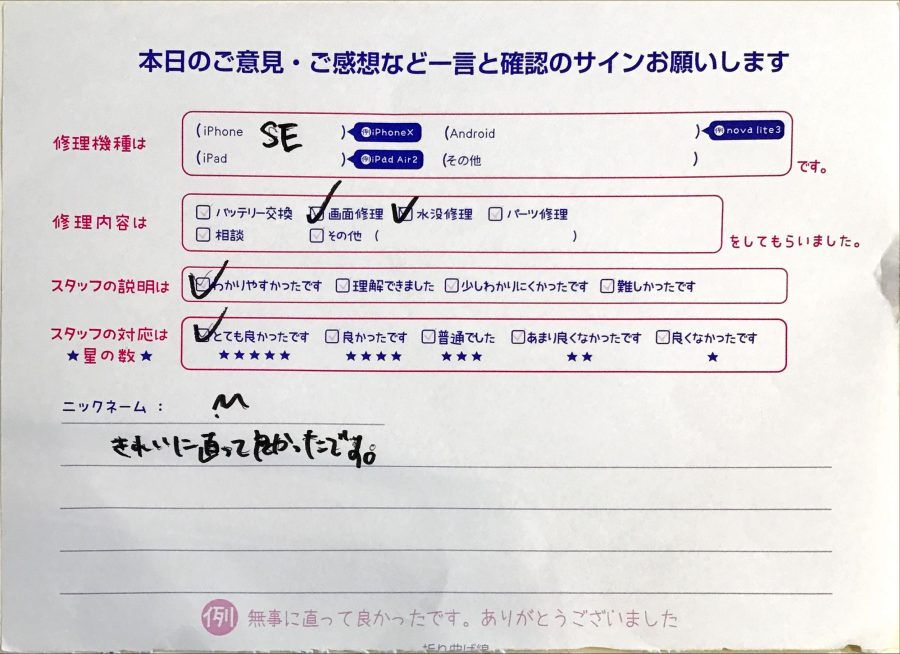 本日のご意見・ご感想など一言と確認のサインお願いします
修理機種は (iPhone SE ) 例iPhoneX (Android ) 例nova lite3
(iPad ) 例iPad Air2 (その他 ) です。
修理内容は バッテリー交換 画面修理 水没修理 パーツ修理
相談 その他 ( ) をしてもらいました。
スタッフの説明は わかりやすかったです 理解できました 少しわかりにくかったです 難しかったです
スタッフの対応は とても良かったです 良かったです 普通でした あまり良くなかったです 良くなかったです
★星の数★ ★★★★★ ★★★★ ★★★ ★★ ★
ニックネーム: M
きれいに直って良かったです。
例 無事に直って良かったです。ありがとうございました
折り曲げ線